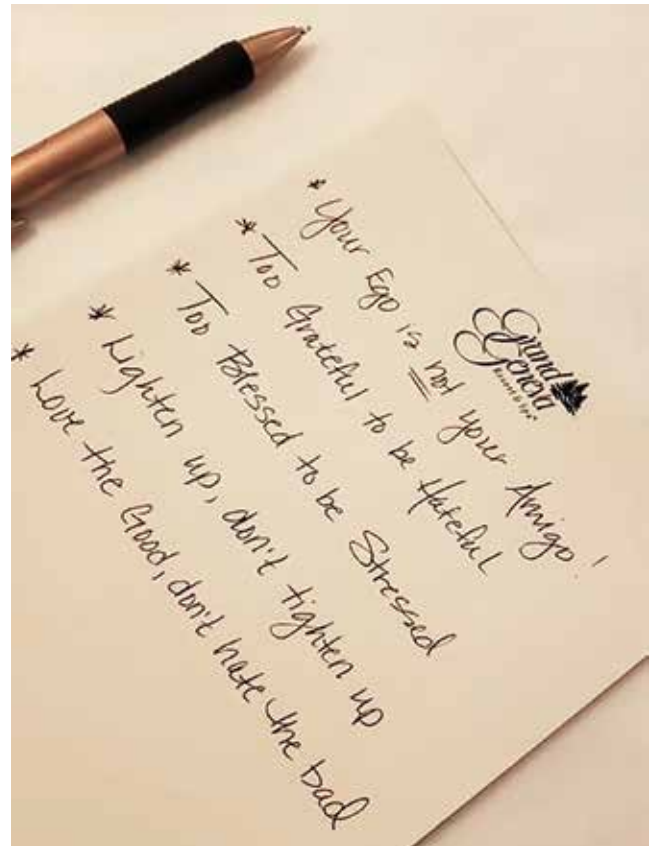 Grand
Geneva
Resort & Spa
* Your Ego is not your Amigo!
* Too Grateful to be Hateful
* Too Blessed to be Stressed
* Lighten up, don't tighten up
* Love the Good, don't hate the bad